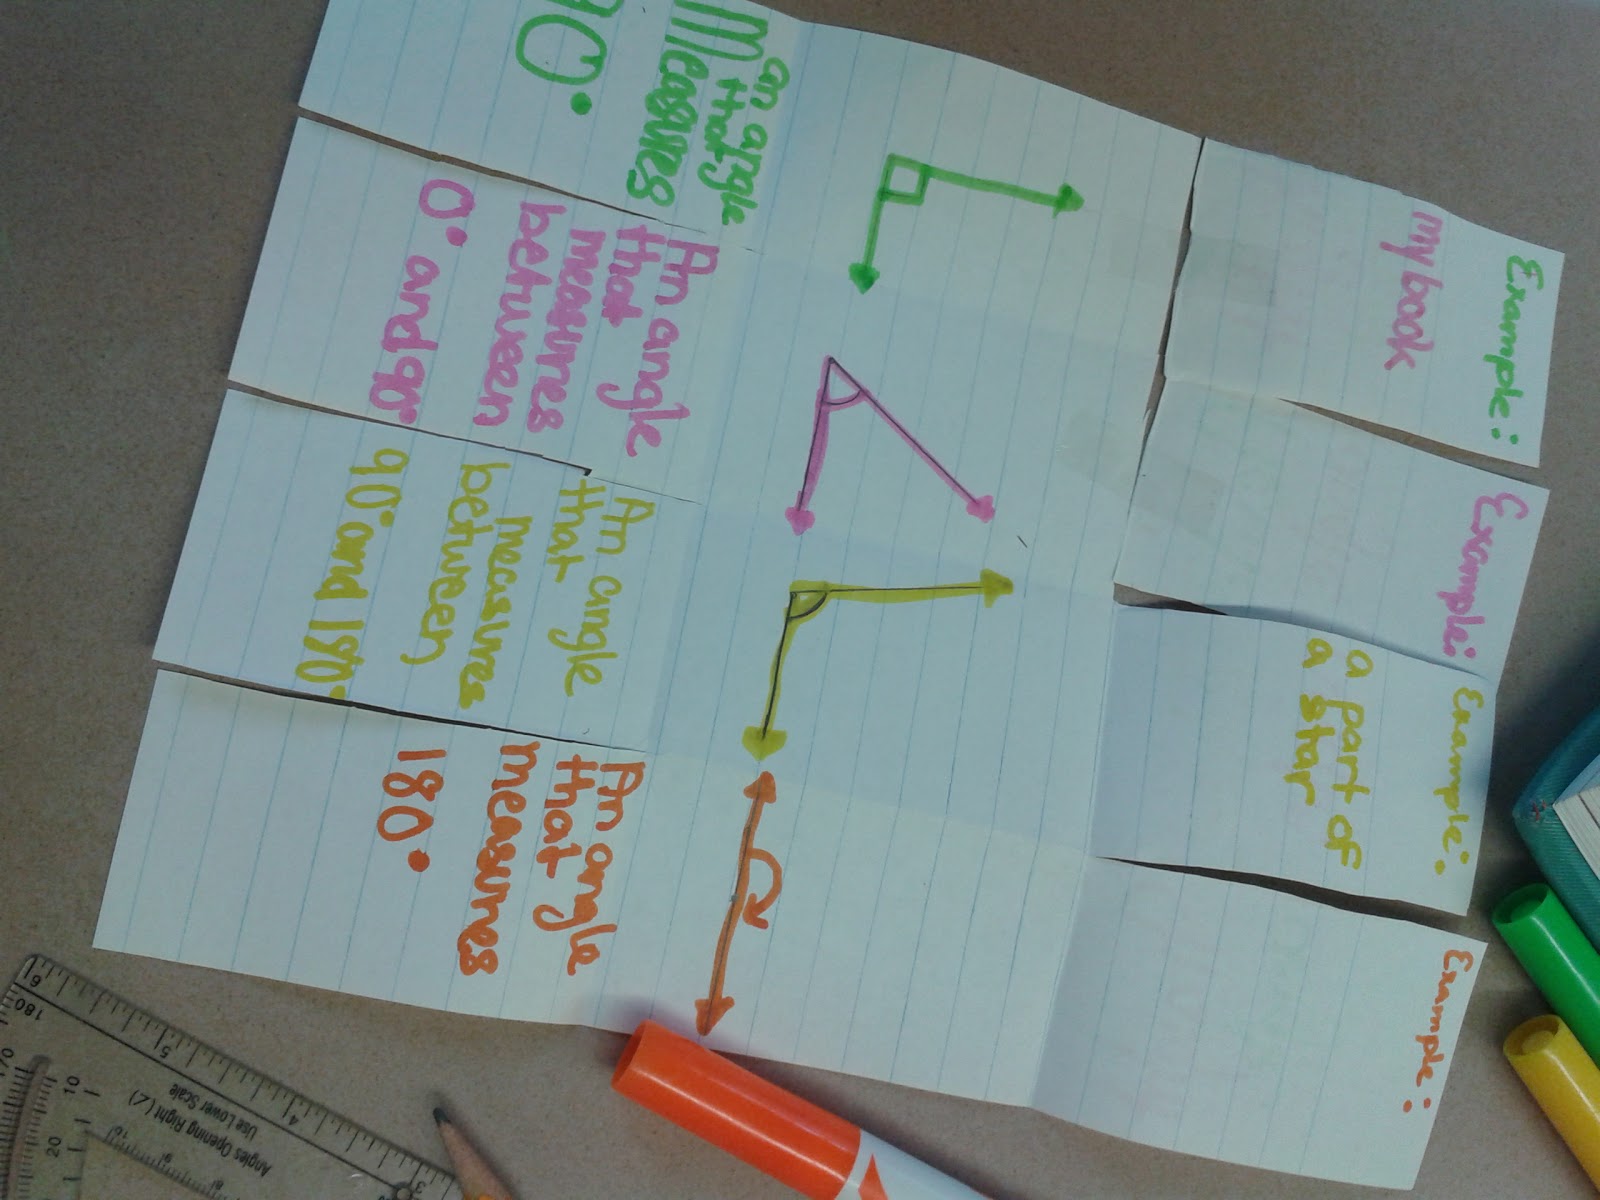 an angle
that
Measures
90°
An angle
that
measures
between
0° and 90°
An angle
that
measures
between
90° and 180°
An angle
that
measures
180°
Example:
my book
Example:
Example:
a part of
a star
Example:
6
5
4
3
180
170
10
20
Angles Opening Right (∠)
Use Lower Scale